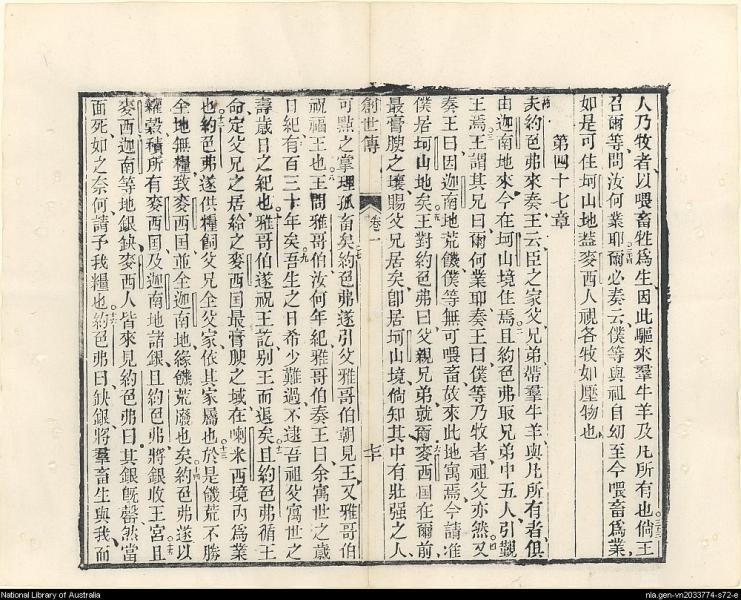 人乃牧者以喂畜牲為生因此驅來羣牛羊及凡所有也倘王
召爾等問汝何業耶爾必奏云僕等與祖自幼至今喂畜為業
如是可住坷山地蓋麥西人視各牧如塵物也
第四十七章
夫約色弗來奏王云臣之家父兄弟帶羣牛羊與凡所有者俱
由迦南地來今在坷山境住焉且約色弗取兄弟中五人引覲
王焉王謂其兄曰爾何業耶奏王曰僕等乃牧者祖父亦然又
奏王曰因迦南地荒饑僕等無可喂畜故來此地寓焉今請准
僕居坷山地矣王對約色弗曰父親兄弟就爾麥西國在爾前
最膏腴之壤賜父兄居矣卽居坷山境倘知其中有壯强之人
創世傳
卷一
七十
可㸃之掌理孤畜矣約色弗遂引父雅哥伯朝見王又雅哥伯
祝福王也王問雅哥伯汝何年紀雅哥伯奏王曰余寓世之歲
日紀有百三十年矣吾生之日希少難過不逮吾祖父寓世之
壽歲日之紀也雅哥伯遂祝王訖別王而退矣且約色弗循王
命定父兄之居給之麥西國最膏腴之域在喇米西境內為業
也約色弗遂供糧飼父兄全父家依其家屬也於是饑荒不勝
全地無糧致麥西國並全迦南地緣饑荒廢也矣約色弗遂以
糴穀積所有麥西國及迦南地諸銀且約色弗將銀收王宮且
麥西迦南等地銀缺麥西人皆來見約色弗曰其銀旣罄然當
面死如之奈何請予我糧也約色弗曰缺銀將羣畜生與我而
National Library of Australia
nla.gen-vn2033774-s72-e